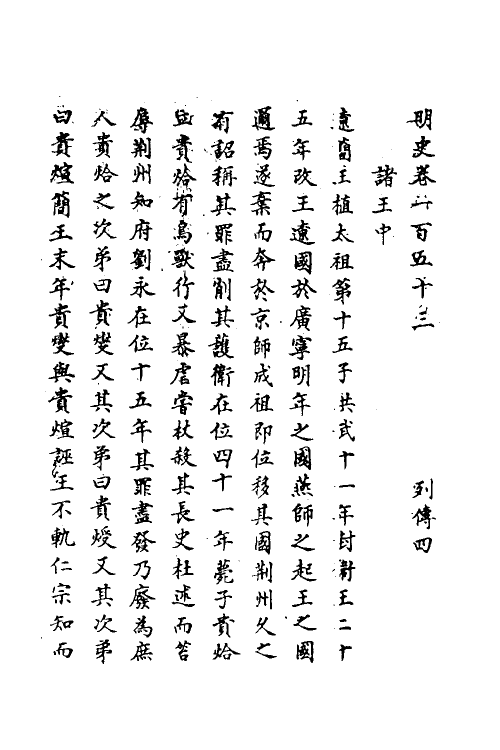 明史卷一百五十三　列傳四
諸王中
遼簡王植太祖第十五子共武十一年封衛王二十
五年改王遼國於廣寧明年之國燕師之起王之國
邇焉遂棄而奔於京師成祖即位移其國荆州久之
有詔稱其罪盡削其護衛在位四十一年薨子貴烚
虫貴烚有鳥獸行又暴虐嘗杖殺其長史杜述而笞
辱荆州知府劉永在位十五年其罪盡發乃廢為庶
人貴烚之次弟曰貴燮又其次弟曰貴煖又其次弟
曰貴煊簡王末年貴燮與貴煊誣王不軌仁宗知而